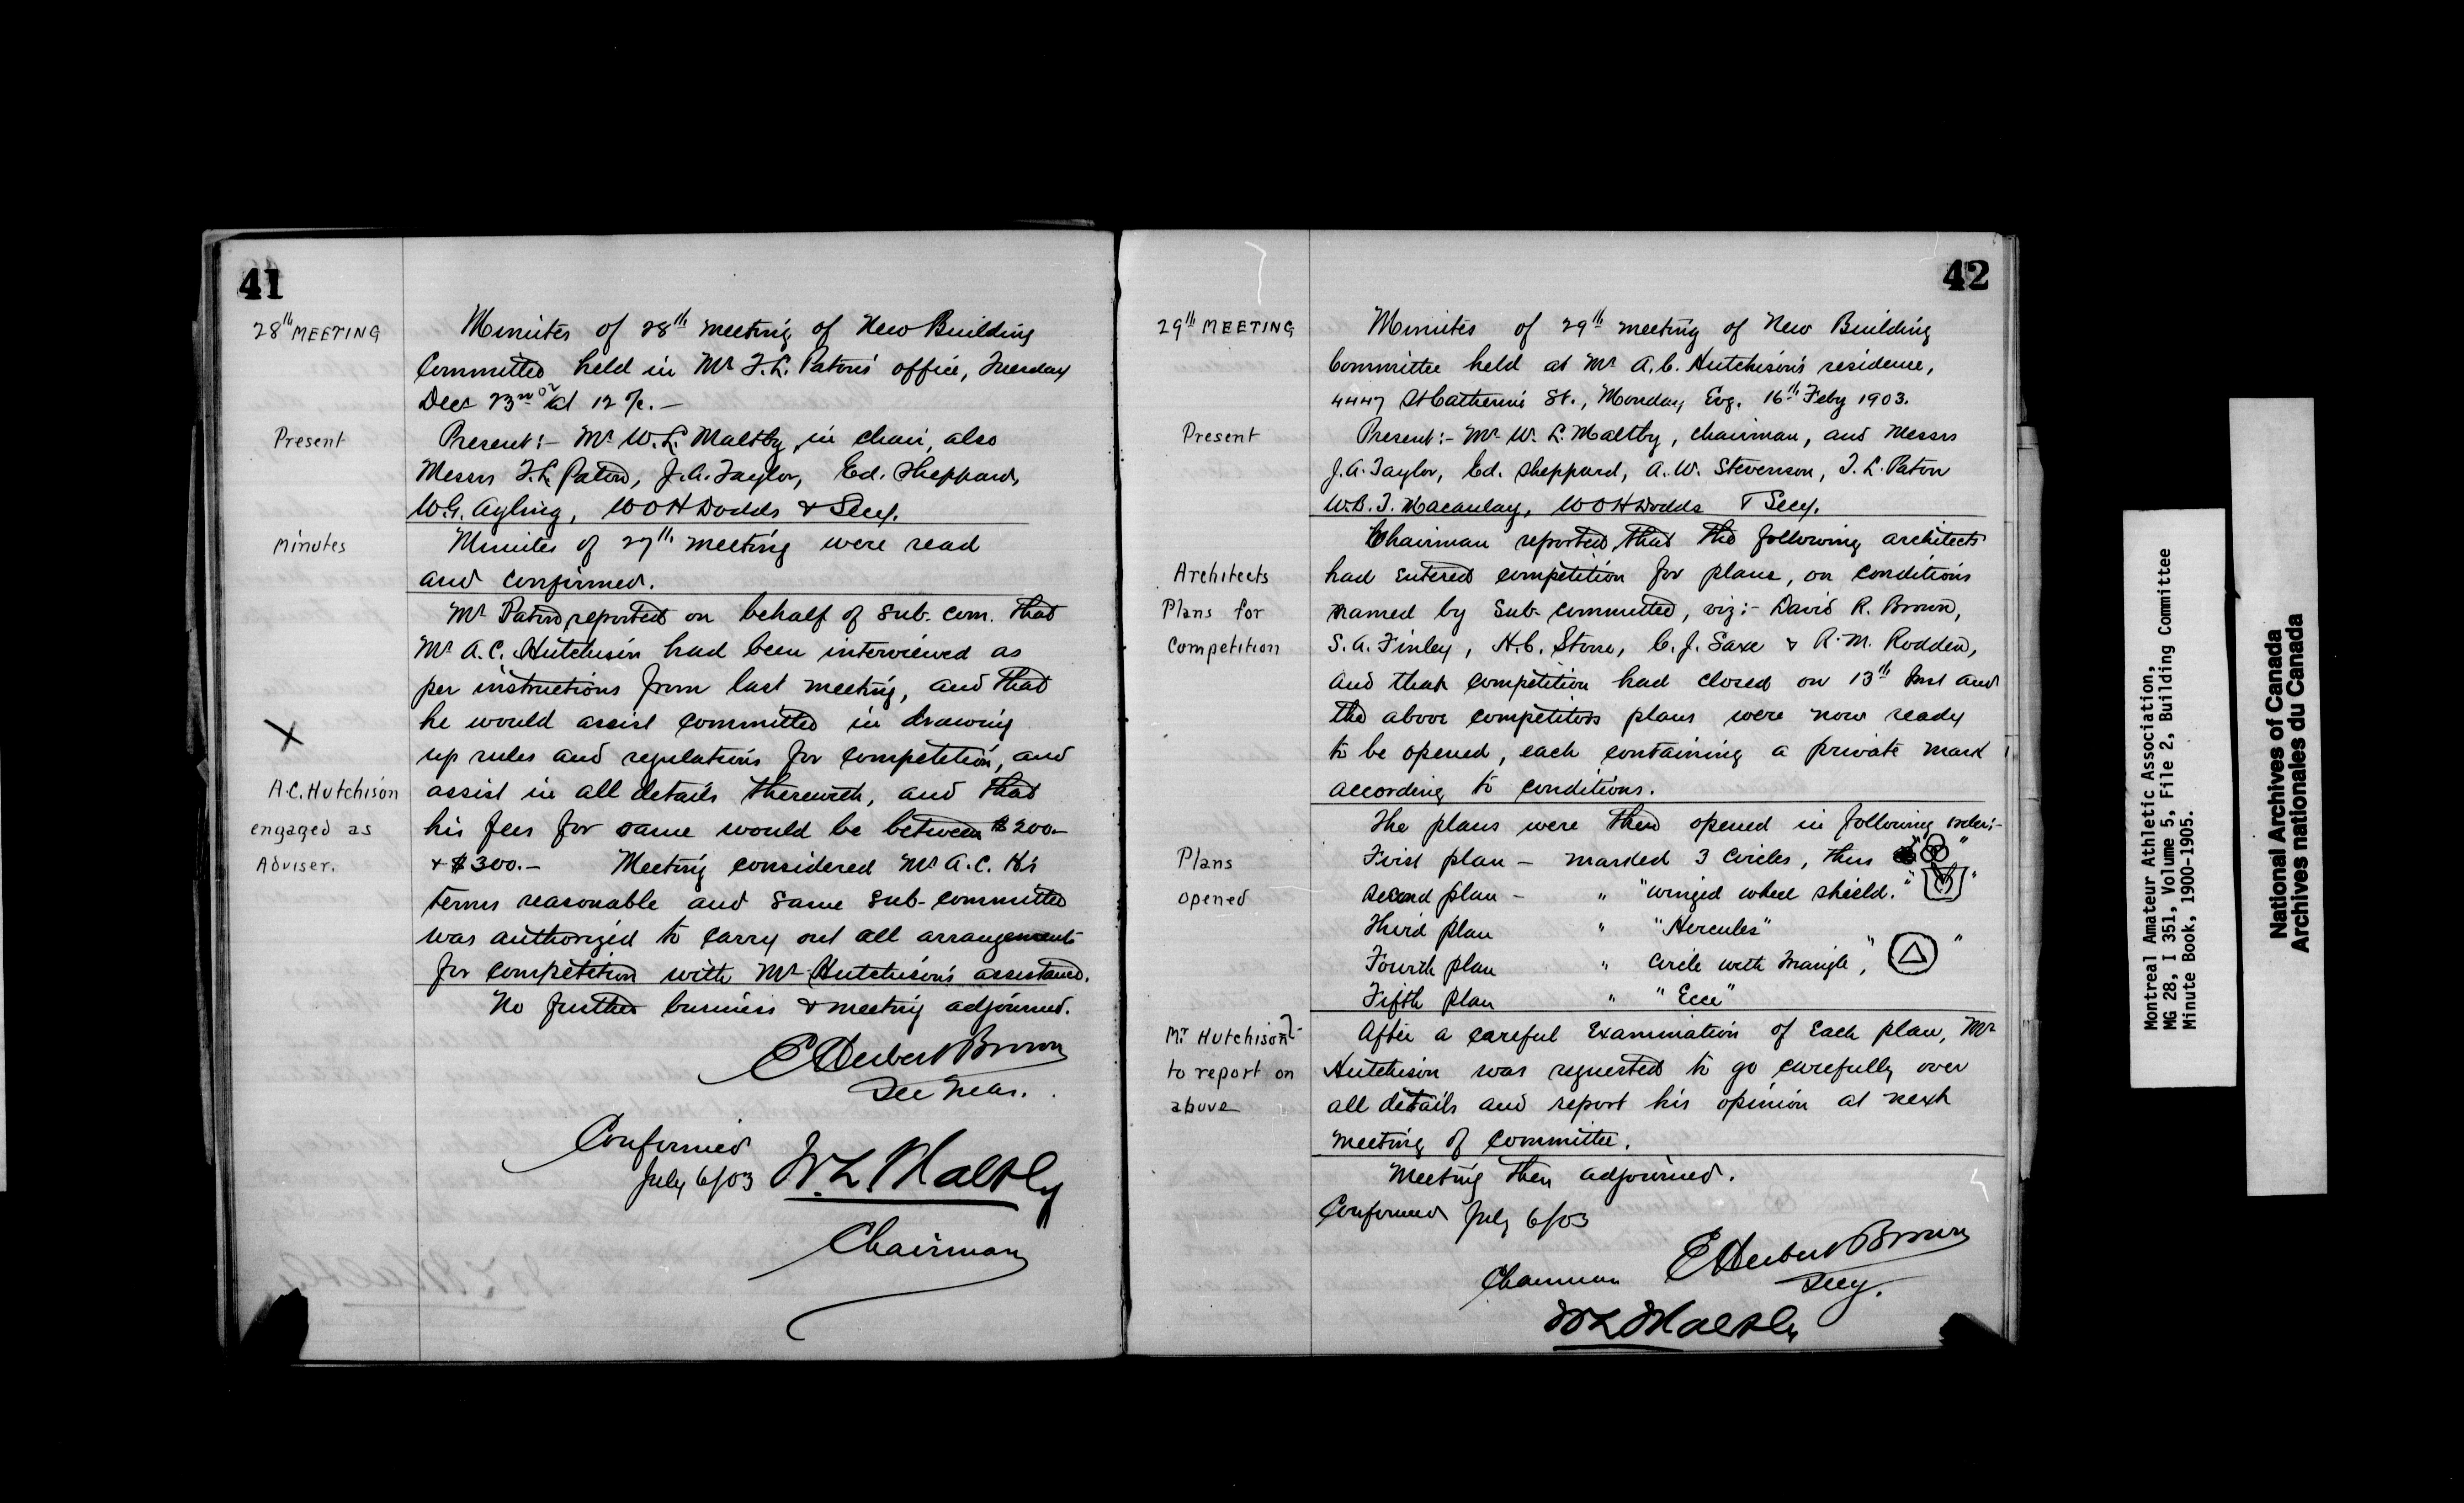 41
28th MEETING
Minutes of 28th meeting of New Building
Committee held in Mr T.L. Paton's office, Tuesday
Decr 23rd 02 at 12 ¾. —
Present
Present:— Mr W.L. Maltby, in chair, also
Messrs T.L. Paton, J.A. Taylor, Ed. Sheppard,
W.G. Ayling, W O H Dodds & Secy.
Minutes
Minutes of 27th meeting were read
and confirmed.
Mr Paton, reported on behalf of Sub. Com. that
Mr A.C. Hutchison had been interviewed as
per instructions from last meeting, and that
he would assist committee in drawing
X
up rules and regulations for competition, and
A.C. Hutchison
assist in all details therewith, and that
engaged as
his fees for same would be between $200.—
Adviser.
& $300.— Meeting considered Mr A.C. H's
terms reasonable and same Sub-Committee
was authorized to carry out all arrangements
for competition with Mr Hutchison's assistance.
No further business & meeting adjourned.
E Herbert Brown
Sec Treas.
Confirmed
July 6/03 W.L. Maltby
Chairman
42
29th MEETING
Minutes of 29th meeting of New Building
Committee held at Mr A.C. Hutchison's residence,
4447 St Catherine St., Monday, Evg. 16th Feby 1903.
Present
Present:— Mr W. L. Maltby, Chairman, and Messrs
J.A. Taylor, Ed. Sheppard, A.W. Stevenson, T.L. Paton
W.B.T. Macaulay, W O H Dodds & Secy.
Chairman reported, that the following architects
Architects
had entered competition for plans, on conditions
Plans for
named by Sub-Committee, viz:— David R. Brown,
Competition
S.A. Finley, H.C. Stone, C.J. Saxe & A.M. Rodden,
and that competition had closed on 13th Inst and
the above competitors plans were now ready
to be opened, each containing a private mark
according to conditions.
The plans were then opened in following order:—
Plans
First plan — marked 3 circles, thus " "
opened
Second plan — " "winged wheel shield." " "
Third plan " "Hercules"
Fourth plan " Circle with triangle, " "
Fifth plan " "Ecce"
Mr Hutchison
After a careful examination of each plan, Mr
to report on
Hutchison was requested to go carefully over
above
all details and report his opinion at next
meeting of committee.
Meeting then adjourned.
Confirmed July 6/03
E Herbert Brown
Chairman Secy.
W L Maltby
Montreal Amateur Athletic Association,
MG 28, I 351, Volume 5, File 2, Building Committee
Minute Book, 1900-1905.
National Archives of Canada
Archives nationales du Canada